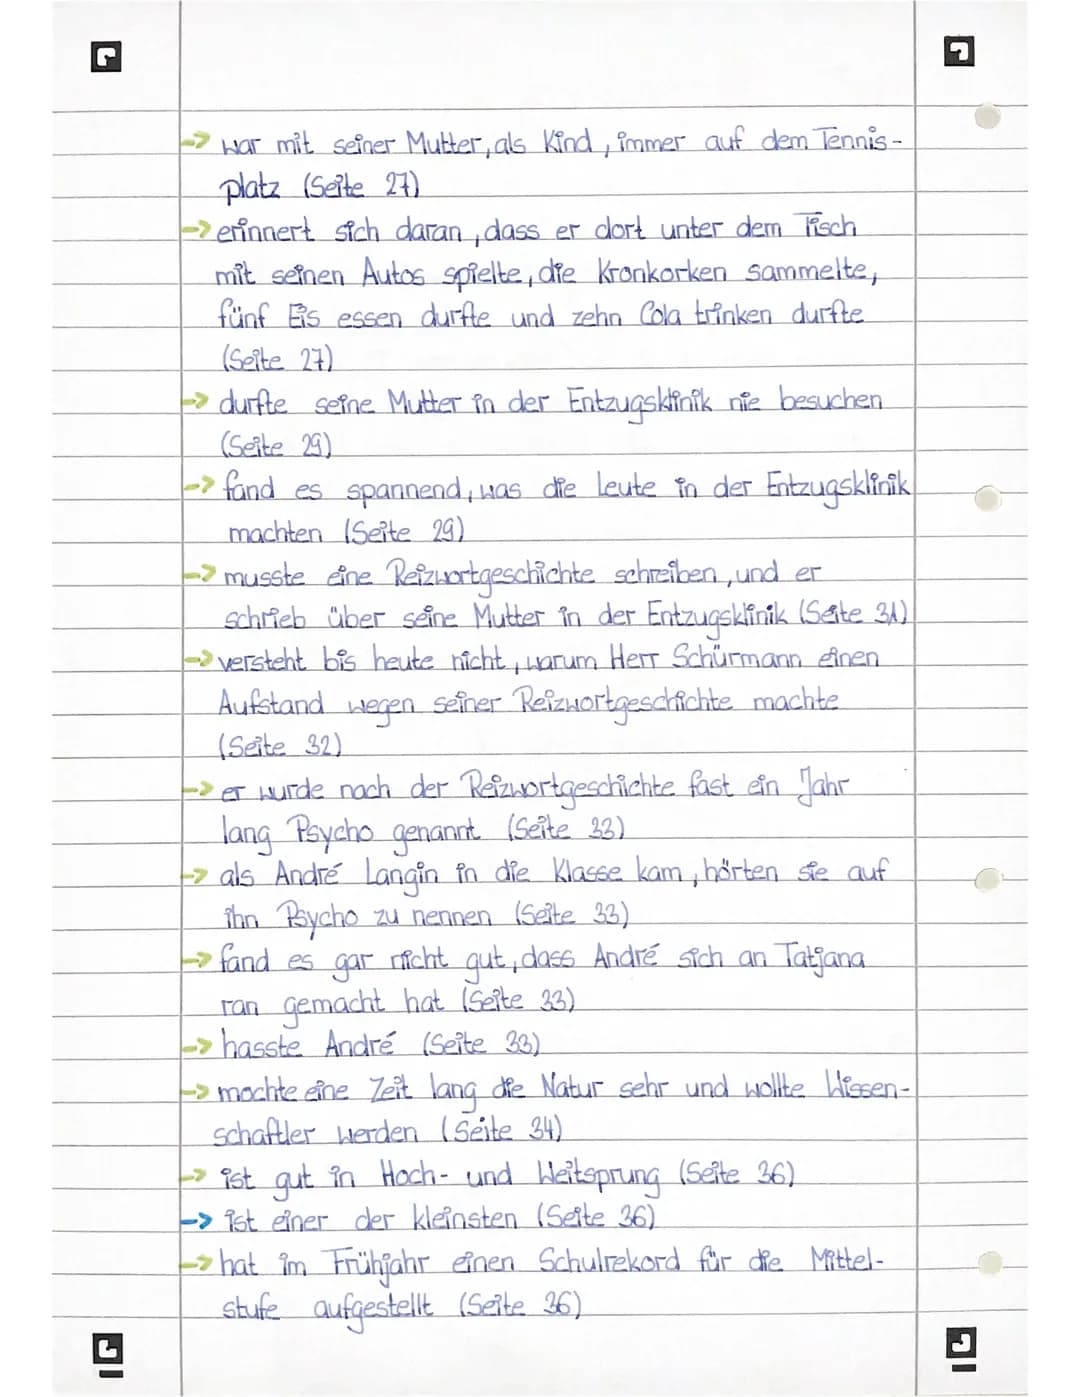 -> war mit seiner Mutter, als Kind, immer auf dem Tennis-
platz (Seite 27)
-> erinnert sich daran, dass er dort unter dem Tisch
mit seinen Autos spielte, die Kronkorken sammelte,
fünf Eis essen durfte und zehn Cola trinken durfte
(Seite 27)
-> durfte seine Mutter in der Entzugsklinik nie besuchen
(Seite 29)
-> fand es spannend, was die Leute in der Entzugsklinik
machten (Seite 29)
-> musste eine Reizwortgeschichte schreiben, und er
schrieb über seine Mutter in der Entzugsklinik (Seite 31)
-> versteht bis heute nicht, warum Herr Schürmann einen
Aufstand wegen seiner Reizwortgeschichte machte
(Seite 32)
-> er wurde nach der Reizwortgeschichte fast ein Jahr
lang Psycho genannt (Seite 33)
-> als André Langin in die Klasse kam, hörten sie auf
ihn Psycho zu nennen (Seite 33)
-> fand es gar nicht gut, dass André sich an Tatjana
ran gemacht hat (Seite 33)
-> hasste André (Seite 33)
-> mochte eine Zeit lang die Natur sehr und wollte Wissen-
schaftler werden (Seite 34)
-> ist gut in Hoch- und Weitsprung (Seite 36)
-> ist einer der kleinsten (Seite 36)
-> hat im Frühjahr einen Schulrekord für die Mittel-
stufe aufgestellt (Seite 36)